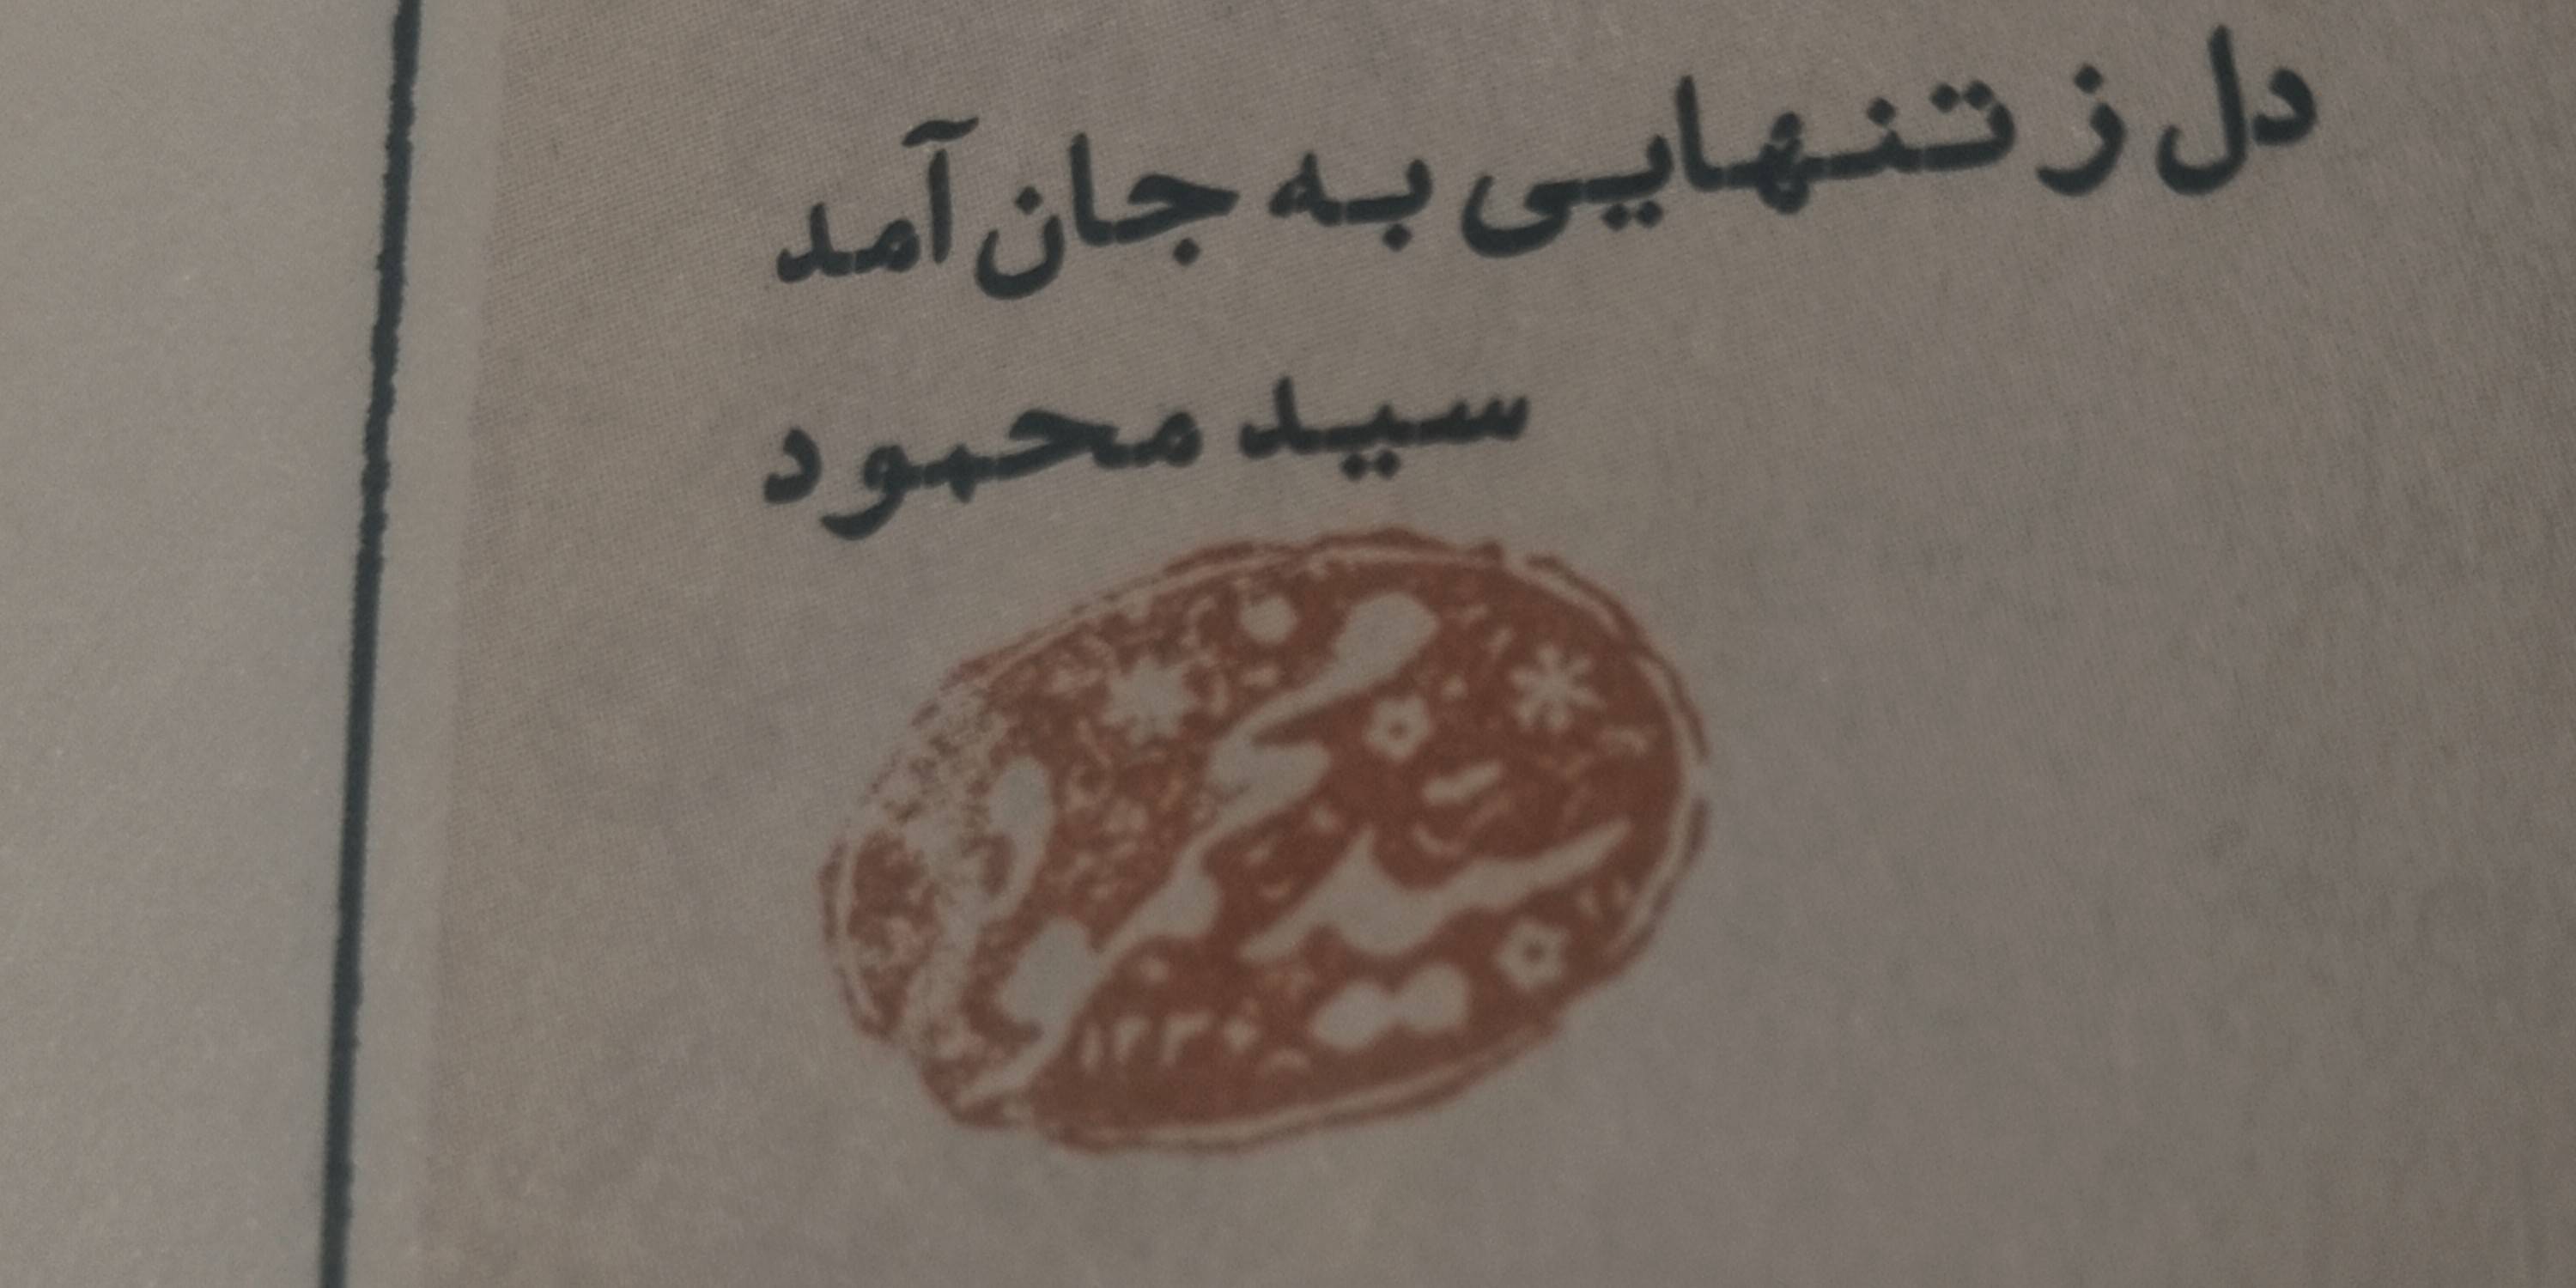 دل ز تنهایی به جان آمد
سید محمود
سید محمود
۱۲۳۰